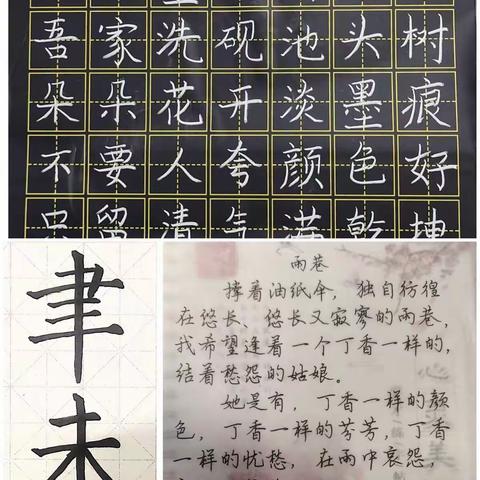 吾家洗砚池头树
朵朵花开淡墨痕
不要人夸颜色好
留清气满乾坤
聿
未
雨巷
撑着油纸伞，独自彷徨
在悠长、悠长又寂寥的雨巷，
我希望逢着一个丁香一样的，
结着愁怨的姑娘。
她是有，丁香一样的颜
色，丁香一样的芬芳，丁香
一样的忧愁，在雨中哀怨，